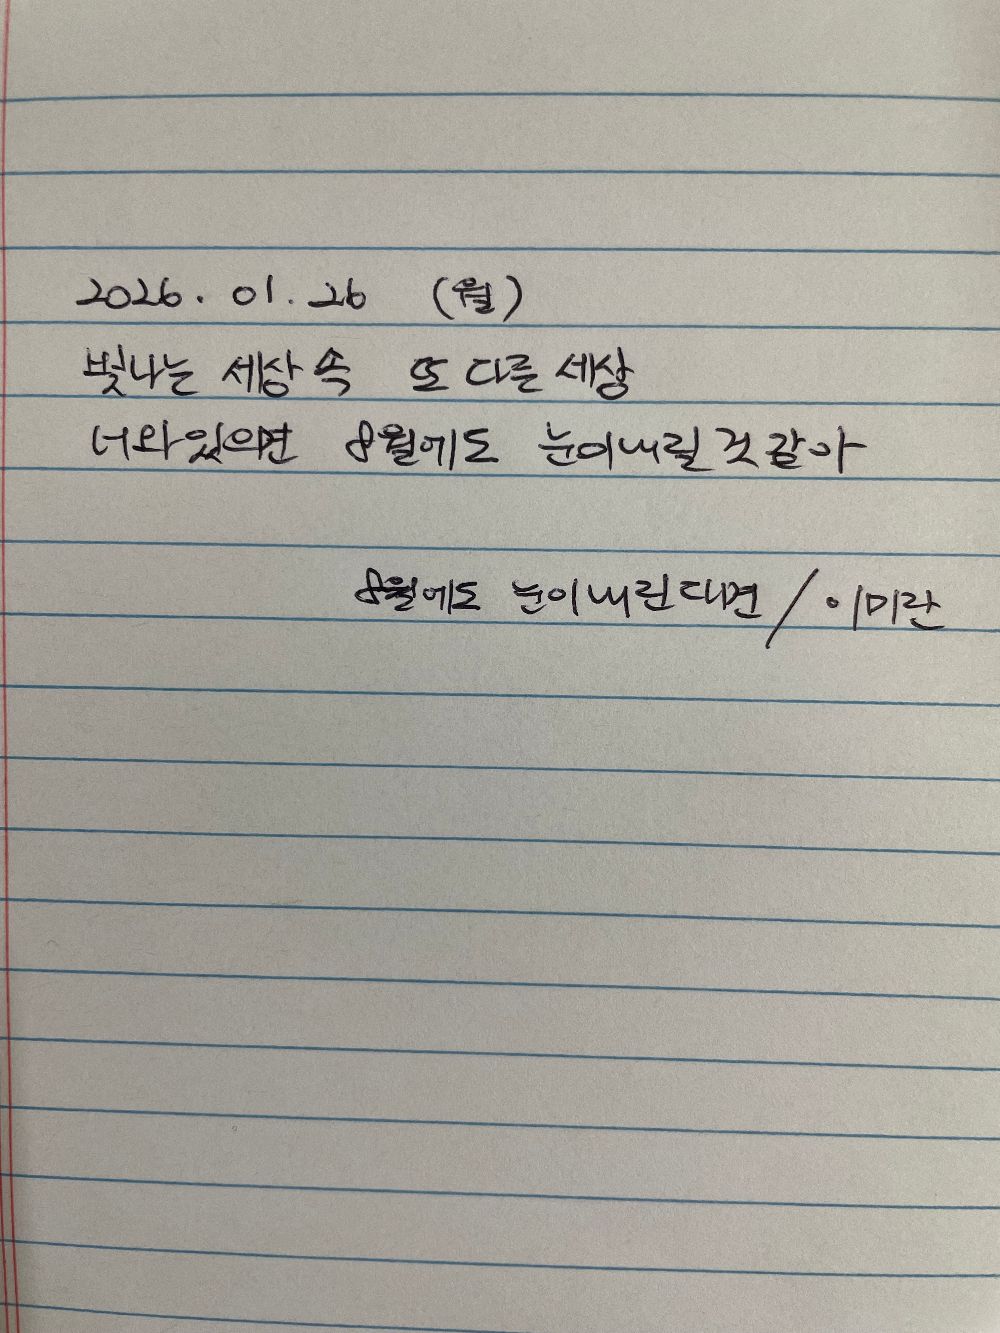 2026. 01. 26 (월)
빛나는 세상 속 또 다른 세상
너와 있으면 8월에도 눈이 내릴 것 같아
8월에도 눈이 내린다면 / 이미란